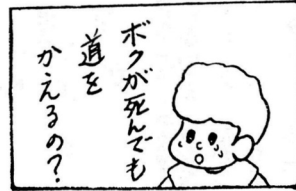 ボクが死んでも
道を
かえるの？